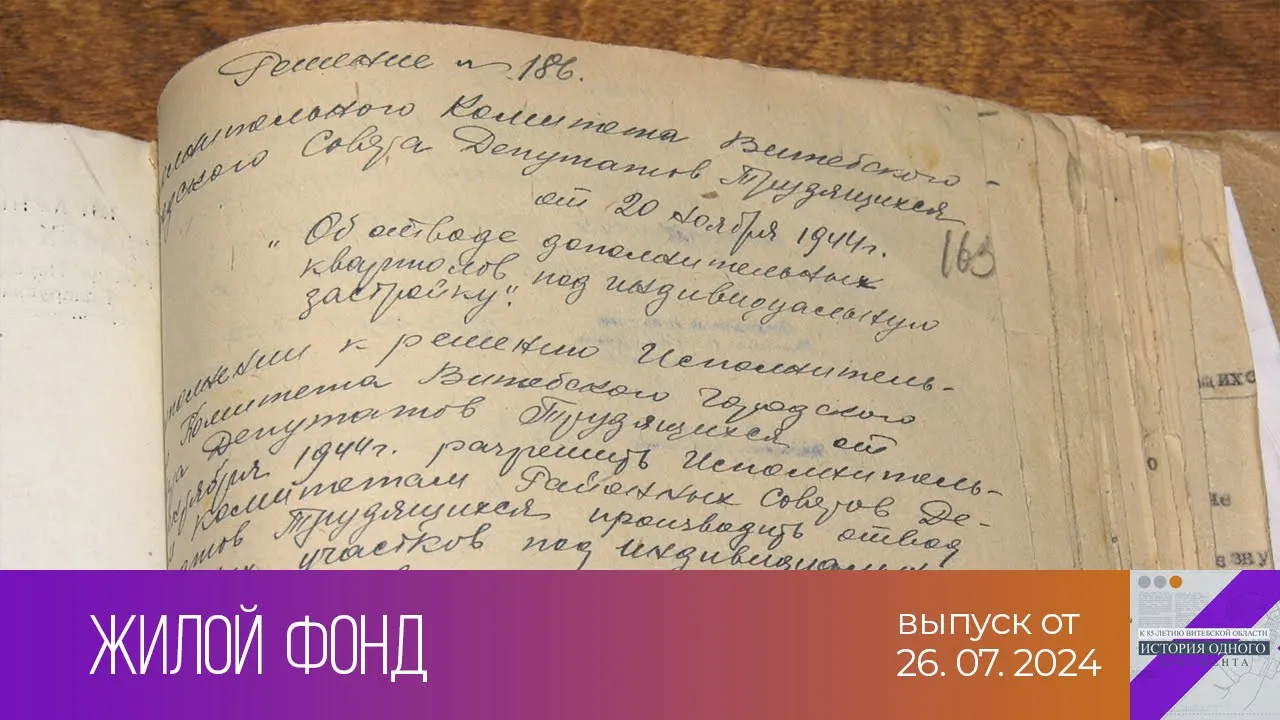 Решение № 186.
нительного Комитета Витебского -
дского Совета Депутатов Трудящихся
от 20 ноября 1944г.
163
„Об отводе дополнительных
кварталов под индивидуальную
застройку".
полнении к решению Исполнитель-
Комитета Витебского Городского
Депутатов Трудящихся от
1944г. разрешить Исполнитель-
Комитетам Районных Советов Де-
татов Трудящихся производить отвод
участков под
ЖИЛОЙ ФОНД
выпуск от
26. 07. 2024
К 85-ЛЕТИЮ ВИТЕБСКОЙ ОБЛАСТИ
ИСТОРИЯ ОДНОГО